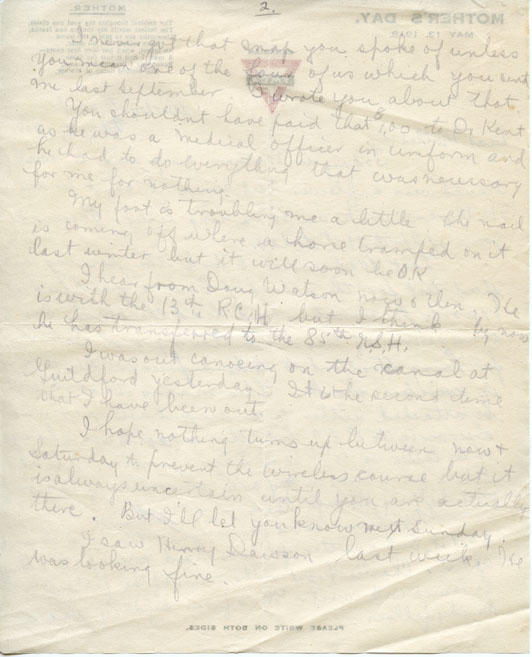 2.
I never got that snap you spoke of unless
you mean one of the four of us which you sent
me last September I wrote you about that
You shouldn't have paid that to Dr Kent
as he was a medical officer in uniform and
he had to do everything that was necessary
for me for nothing.
My foot is troubling me a little the nail
is coming off where a horse tramped on it
last winter but it will soon be OK
I hear from Doug Watson now & then. He
is with the 13th R.C.H. but I think by now
he has transferred to the 85th N.S.H.
I was out canoeing on the canal at
Guildford yesterday It is the second time
that I have been out.
I hope nothing turns up between now &
Saturday to prevent the wireless course but it
is always uncertain until you are actually
there. But I'll let you know next Sunday.
I saw Henry Dawson last week. He
was looking fine.
MOTHER'S DAY.
MAY 12, 1918
MOTHER.
PLEASE WRITE ON BOTH SIDES.